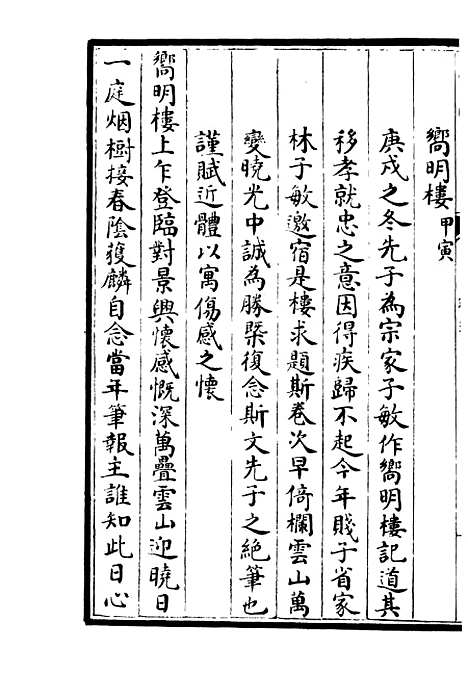 嚮明樓甲寅
庚戌之冬先子為宗家子敏作嚮明樓記道其
移孝就忠之意因得疾歸不起今年賤子省家
林子敏邀宿是樓求題斯卷次早倚欄雲山萬
變曉光中誠為勝槩復念斯文先子之絕筆也
謹賦近體以寓傷感之懷
嚮明樓上乍登臨對景興懷感慨深萬疊雲山迎曉日
一庭烟樹接春陰獲麟自念當年筆報主誰知此日心